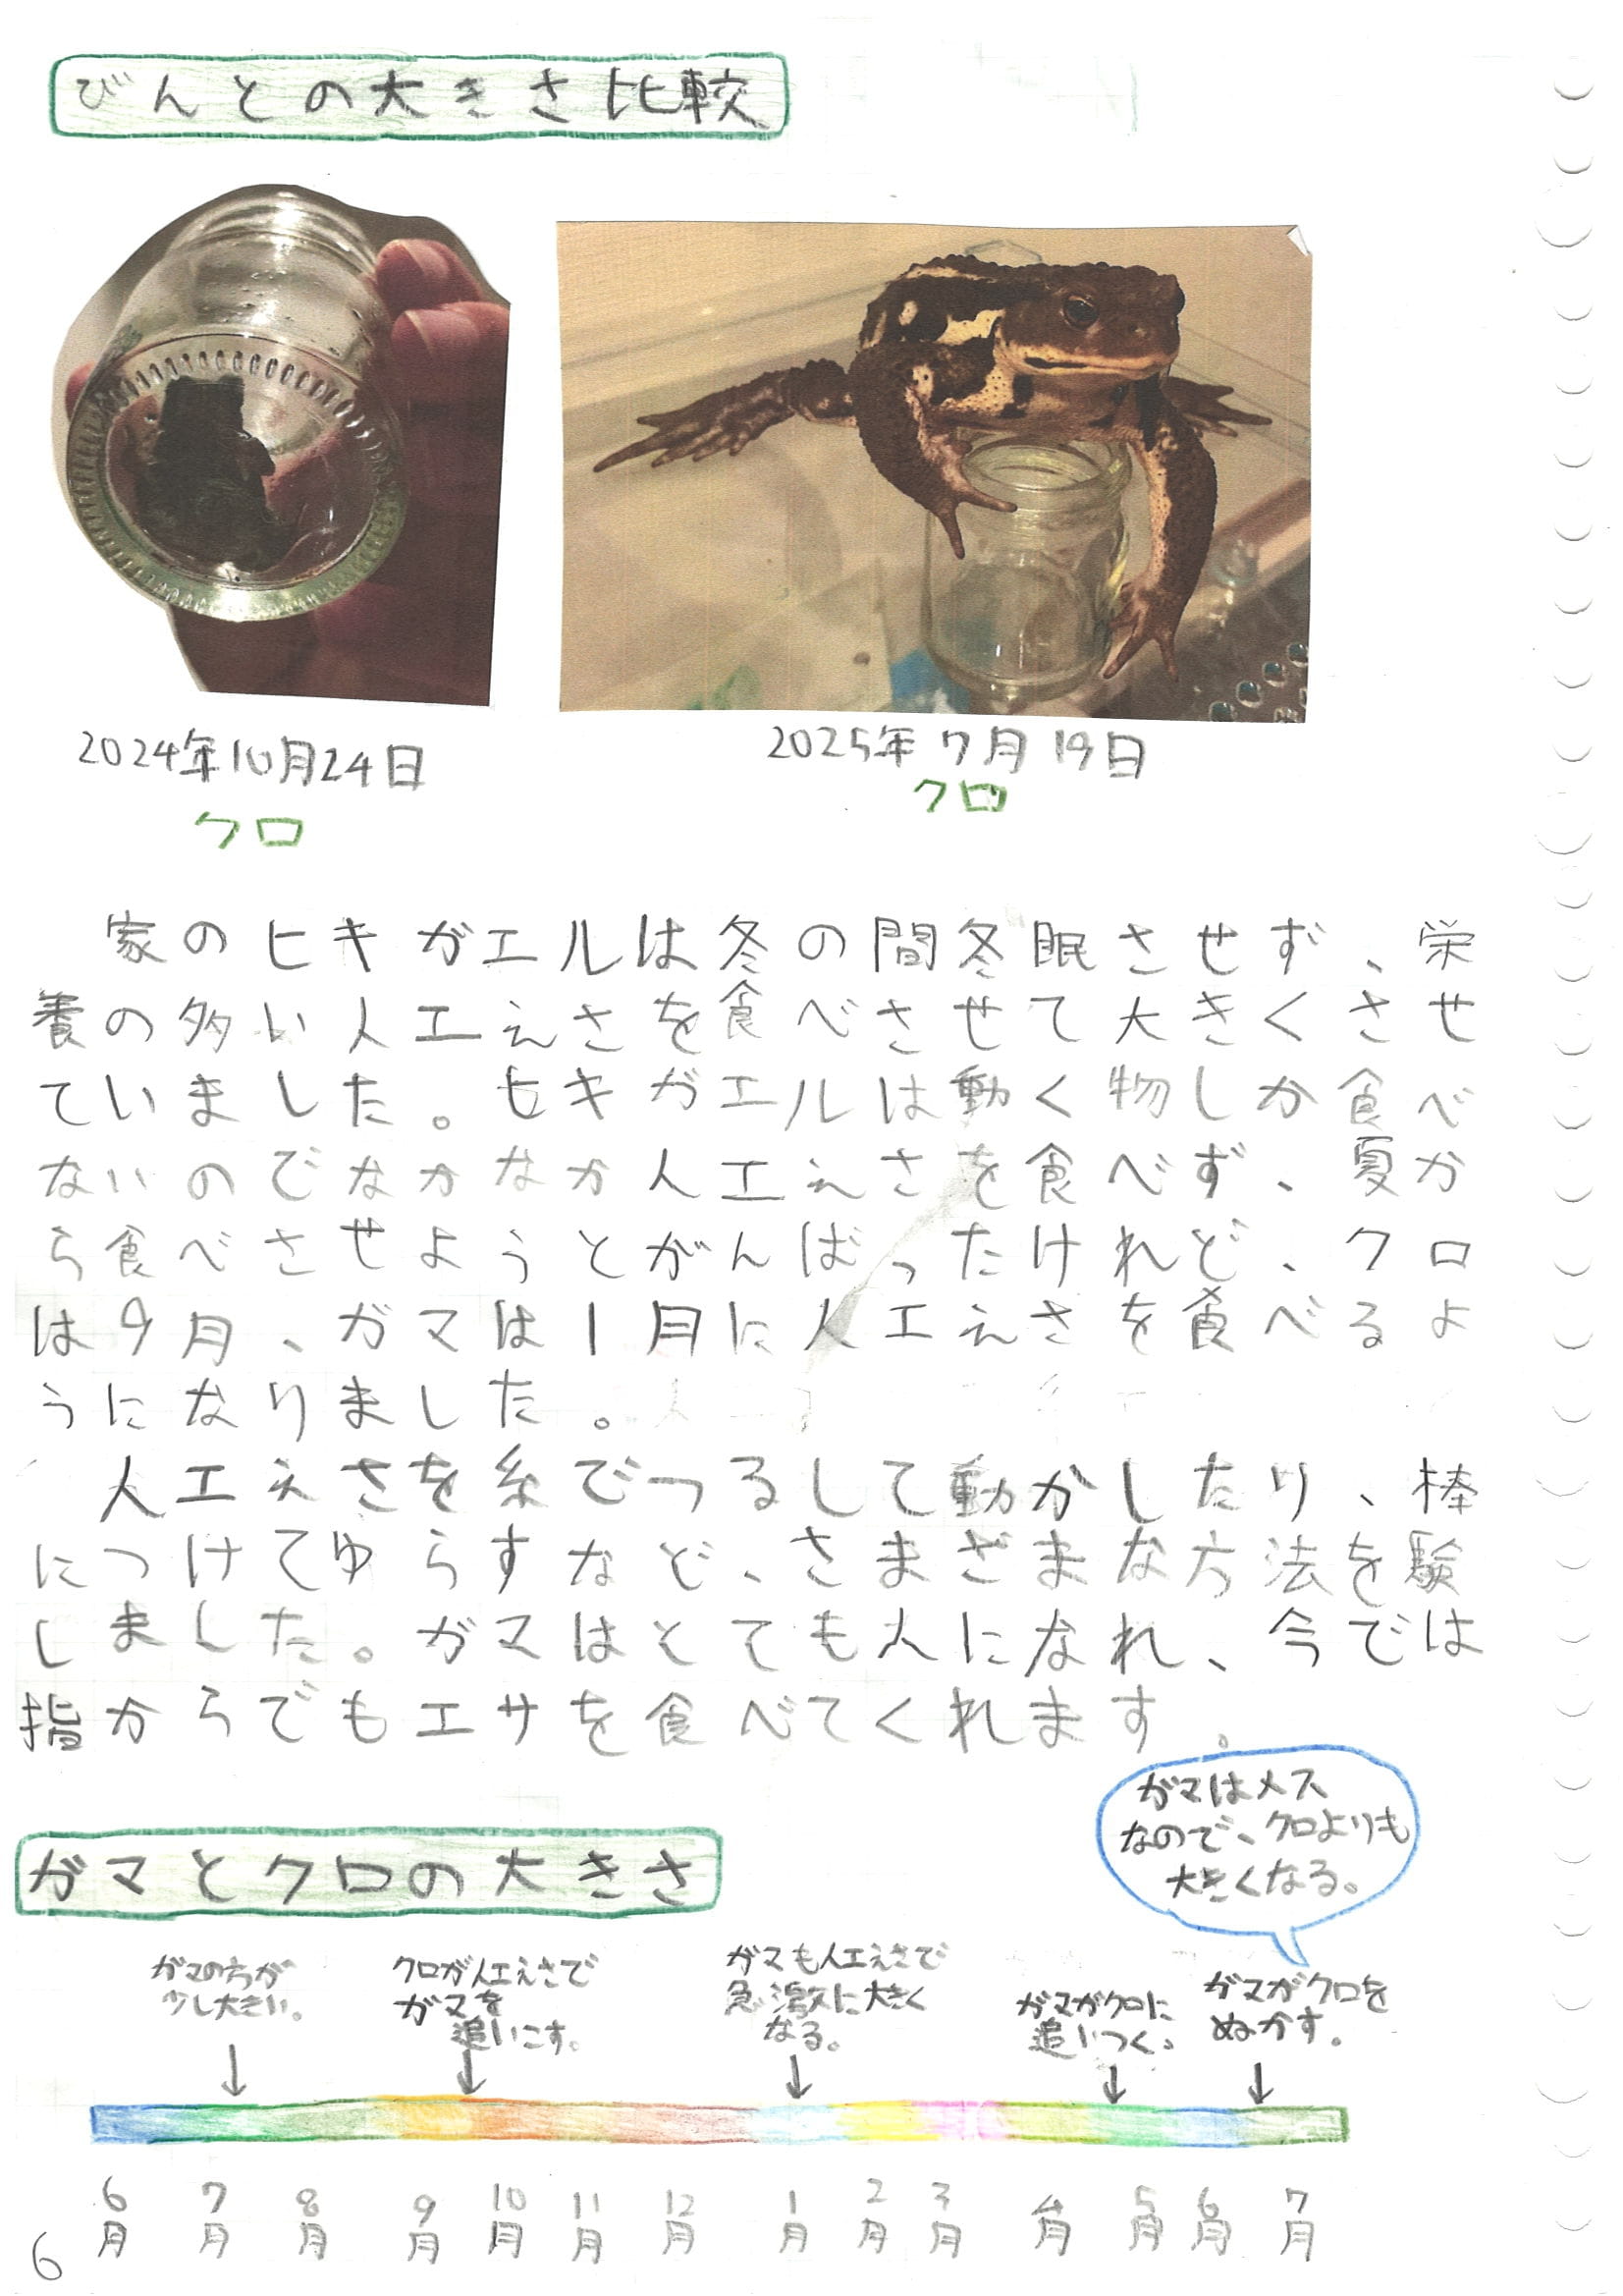 びんとの大きさ比較
2024年10月24日
クロ
2025年7月19日
クロ
家のヒキガエルは冬の間冬眠させず、栄
養の多い人工えさを食べさせて大きくさせ
ていました。ヒキガエルは動く物しか食べ
ないのでなかなか人工えさを食べず、夏か
ら食べさせようとがんばったけれど、クロ
は9月、ガマは1月に人工えさを食べるよ
うになりました。
人工えさを糸でつるして動かしたり、棒
につけてゆらすなど、さまざまな方法を験
しました。ガマはとても人になれ、今では
指からでもエサを食べてくれます。
ガマはメス
なので、クロよりも
大きくなる。
ガマとクロの大きさ
ガマの方が
少し大きい。
クロが人工えさで
ガマを
追いこす。
ガマも人工えさで
急激に大きく
なる。
ガマがクロに
追いつく。
ガマがクロを
ぬかす。
6月 7月 8月 9月 10月 11月 12月 1月 2月 3月 4月 5月 6月 7月
6